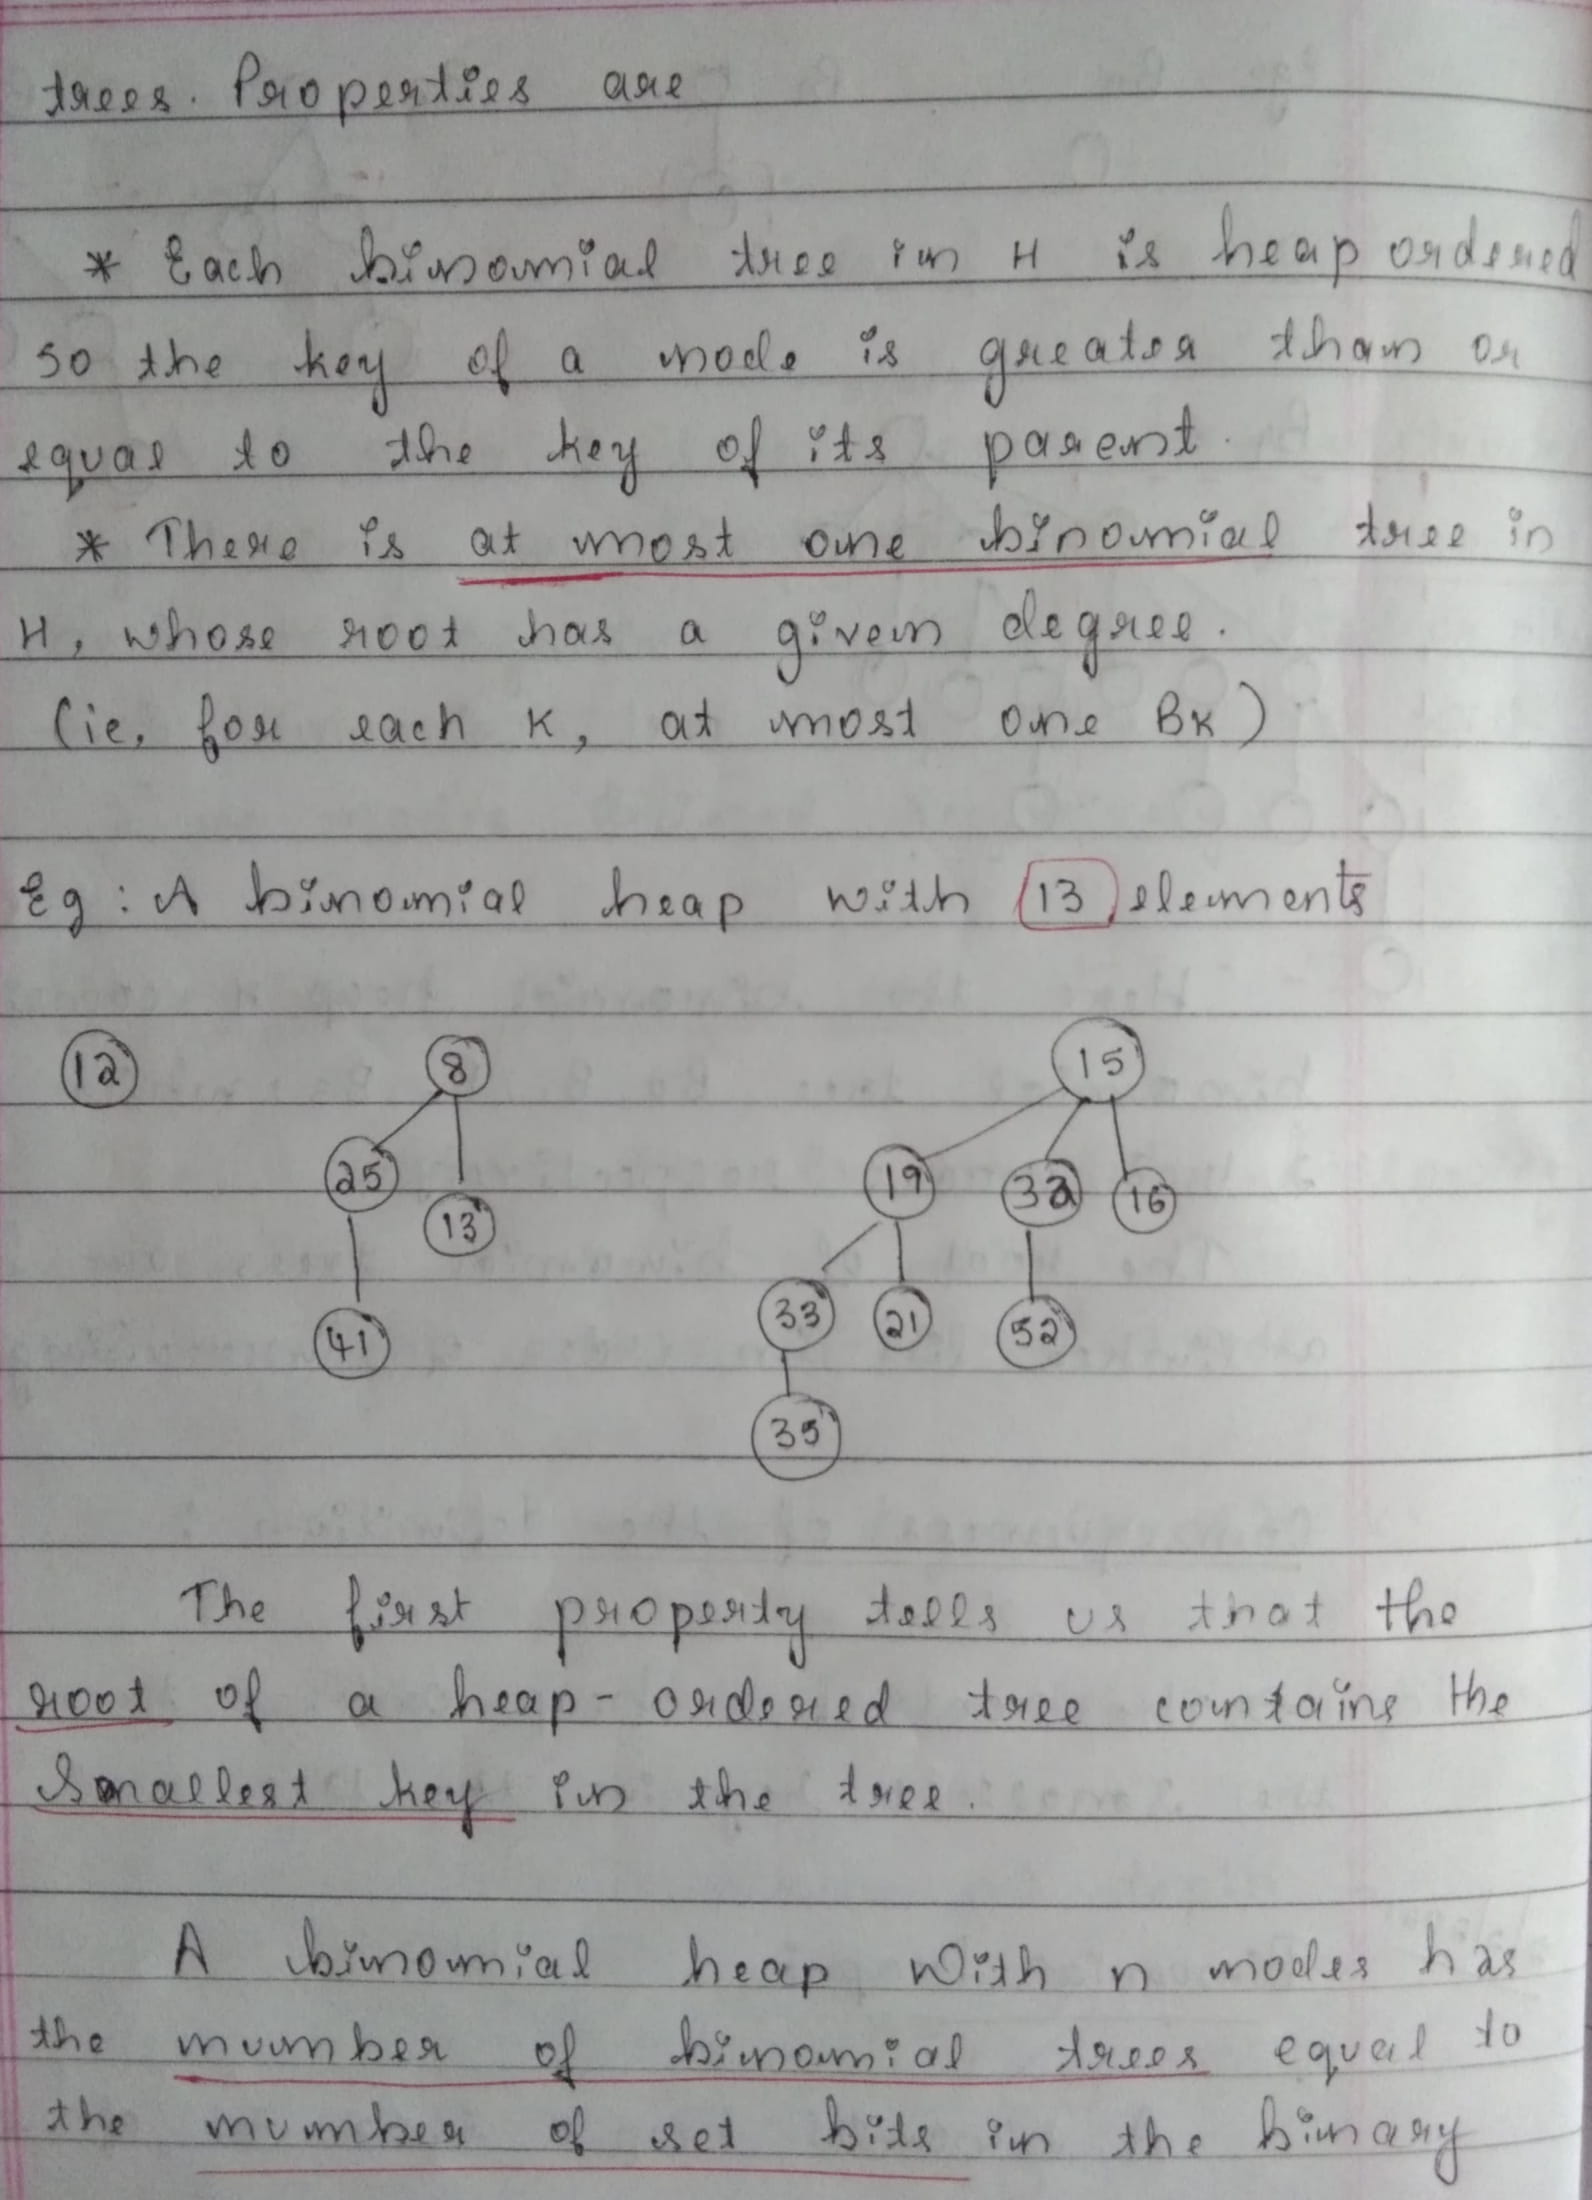 trees. Properties are
* Each binomial tree in H is heap ordered
so the key of a node is greater than or
equal to the key of its parent.
* There is at most one binomial tree in
H, whose root has a given degree.
(ie, for each K, at most one BK)
Eg : A binomial heap with 13 elements
12 8 15
25 13 19 32 16
41 33 21 52
35
The first property tells us that the
root of a heap-ordered tree contains the
Smallest key in the tree.
A binomial heap with n nodes has
the number of binomial trees equal to
the number of set bits in the binary